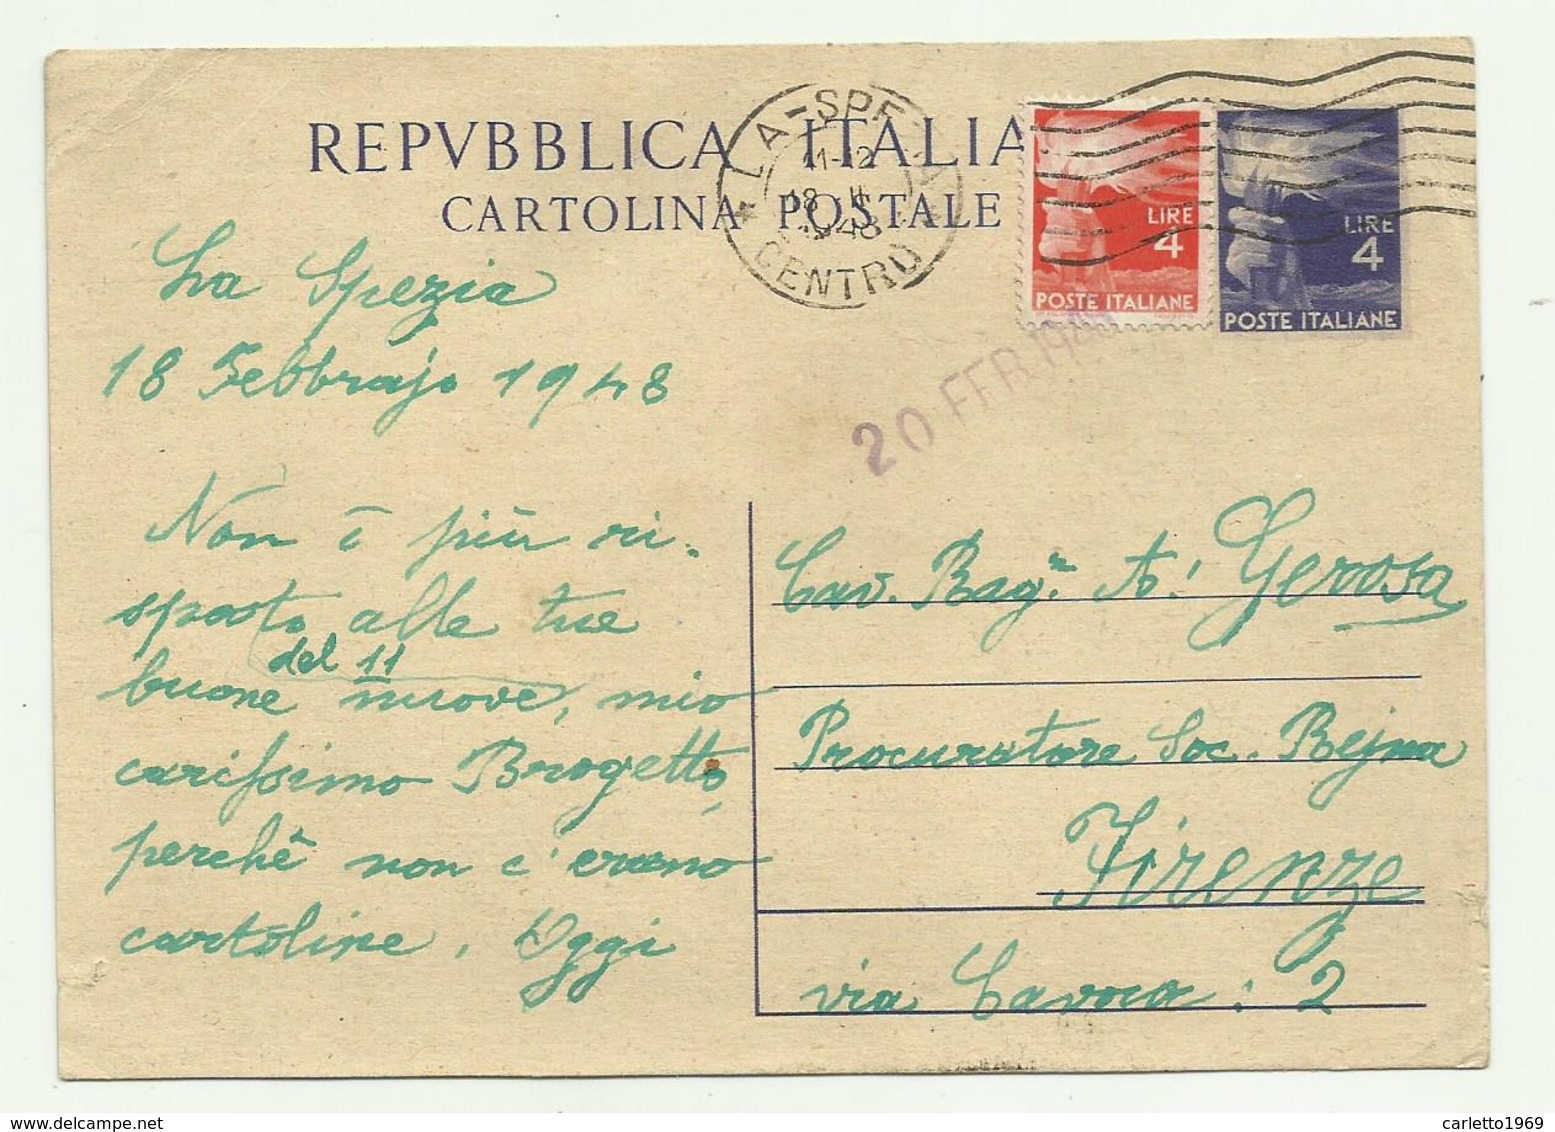 REPVBBLICA ITALIA
CARTOLINA POSTALE
LA-SPE
11-12
18 II
1948
CENTRO
LIRE
4
POSTE ITALIANE
LIRE
4
POSTE ITALIANE
20 FEB. 194
La Spezia
18 Febbrajo 1948
Non ē più ri-
sposto alle tue
del 11
buone nuove, mio
carissimo Brogetto,
perchē non c'erano
cartoline. Oggi
Cav. Rag. A. Gerosa
Procuratore Soc. Rejna
Firenze
via Cavour: 2
www.delcampe.net
carletto1969